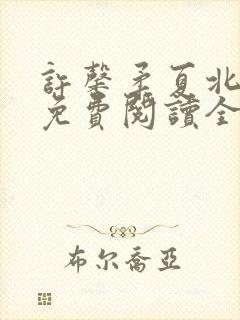 許馨矛夏北
免費閱讀全
布尔喬亞